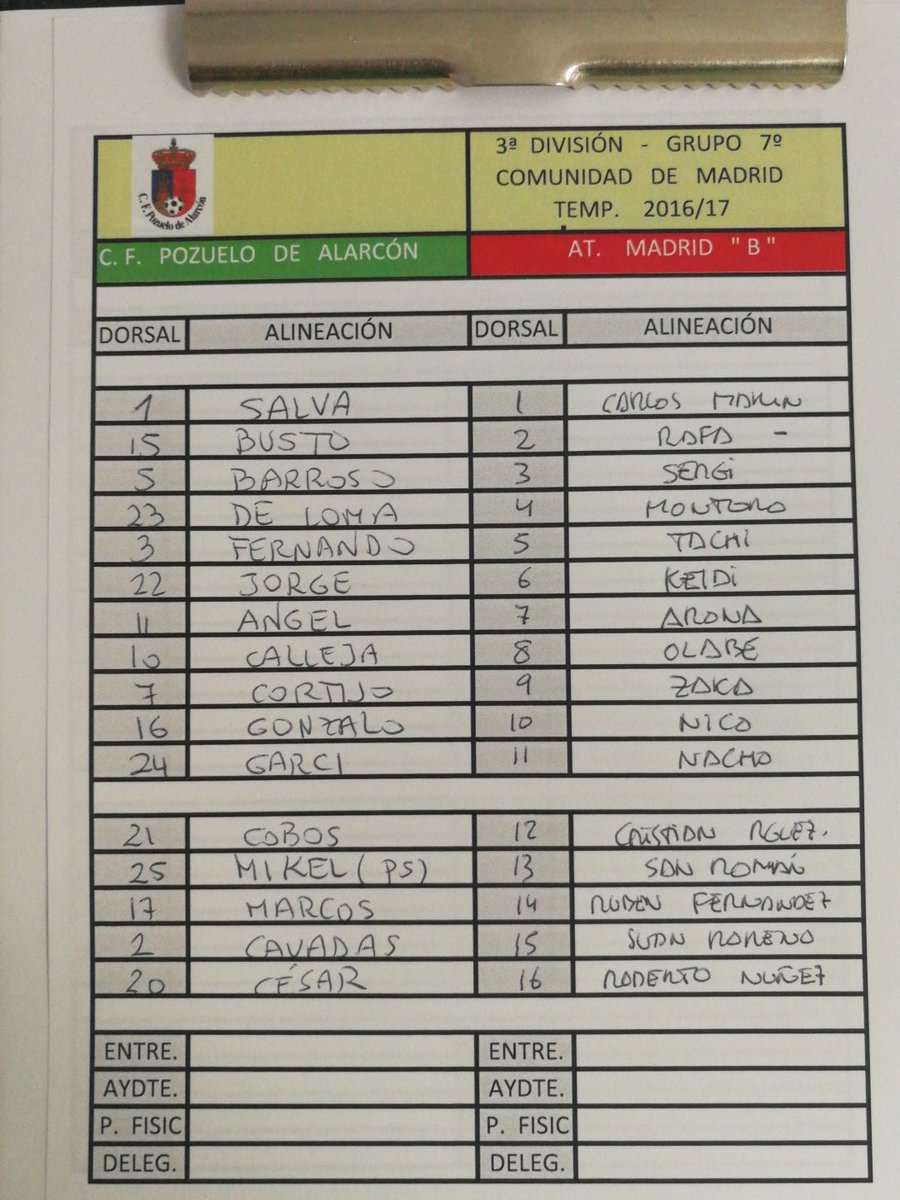 C.F. Pozuelo de Alarcón
3ª DIVISIÓN - GRUPO 7º
COMUNIDAD DE MADRID
TEMP. 2016/17
C. F. POZUELO DE ALARCÓN AT. MADRID "B"
DORSAL ALINEACIÓN DORSAL ALINEACIÓN
1 SALVA 1 CARLOS MARIN
15 BUSTO 2 RAFA -
5 BARROSO 3 SERGI
23 DE LOMA 4 MONTORO
3 FERNANDO 5 TACHI
22 JORGE 6 KEIDI
11 ANGEL 7 ARONA
10 CALLEJA 8 OLABE
7 CORTIJO 9 ZAKA
16 GONZALO 10 NICO
24 GARCI 11 NACHO
21 COBOS 12 CRISTIAN RGUEZ.
25 MIKEL (PS) 13 SAN ROMÁN
17 MARCOS 14 RUBEN FERNANDEZ
2 CAVADAS 15 JUAN MORENO
20 CÉSAR 16 ROBERTO NUÑEZ
ENTRE. ENTRE.
AYDTE. AYDTE.
P. FISIC P. FISIC
DELEG. DELEG.